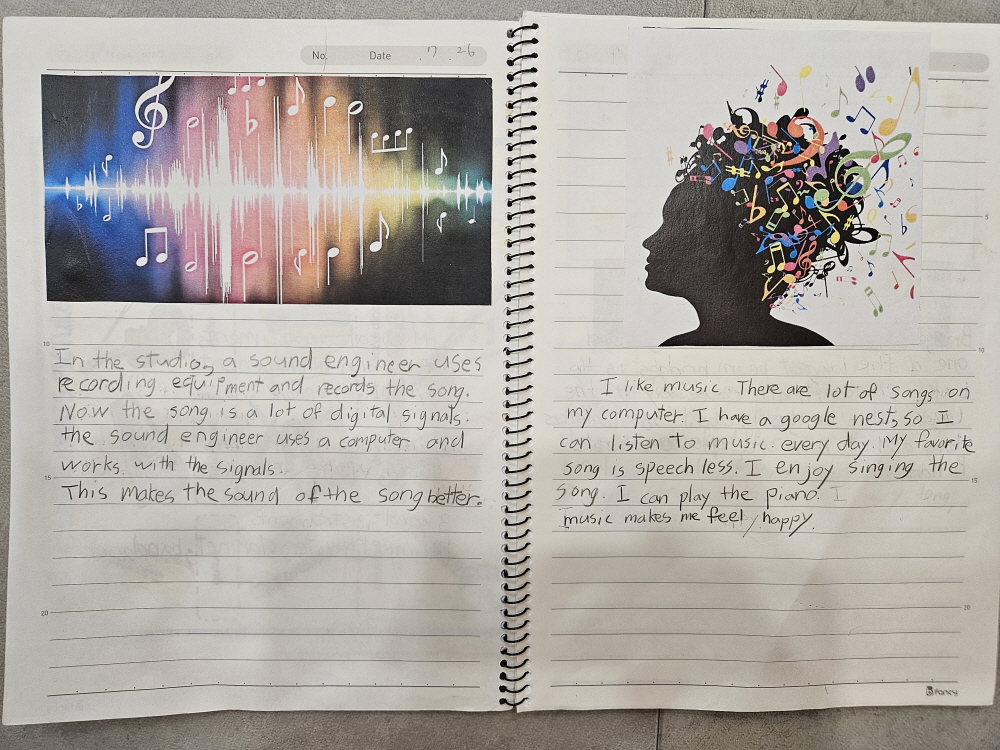 No. Date 7 26
10
In the studio, a sound engineer uses
recording equipment and records the song.
Now the song is a lot of digital signals.
the sound engineer uses a computer and
works with the signals.
15
This makes the sound of the song better.
20
5
10
I like music. There are lot of songs on
my computer. I have a google nest, so I
can listen to music every day. My favorite
song is speech less. I enjoy singing the
15
song. I can play the piano.
music makes me feel happy.
20
fancy